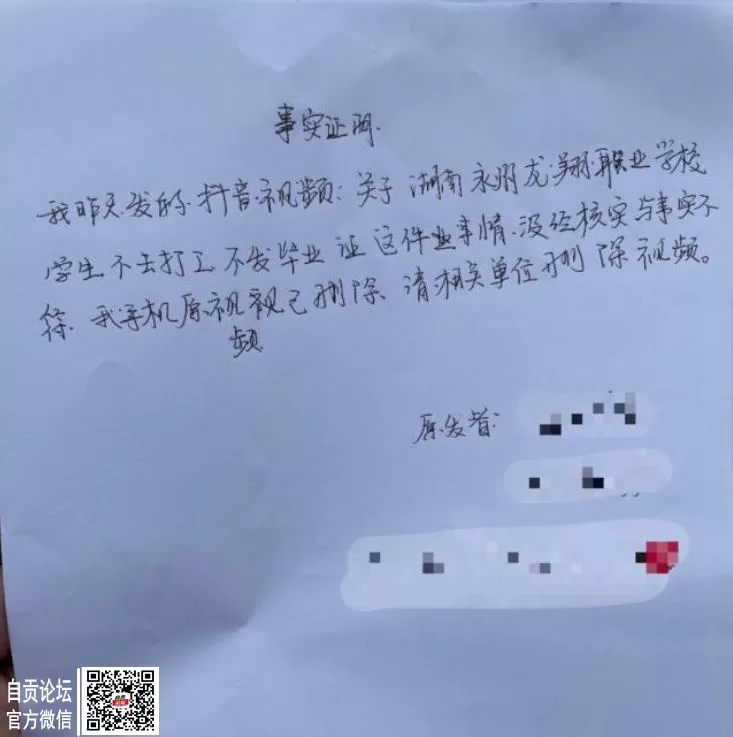 事实证明.
我昨天发的抖音视频：关于湖南永州龙翔职业学校
学生不去打工不发毕业证这件业事情.没经核实与事实不
符.我手机原视视已删除.请相关单位删除视频。
频
原发者:
自贡论坛
官方微信